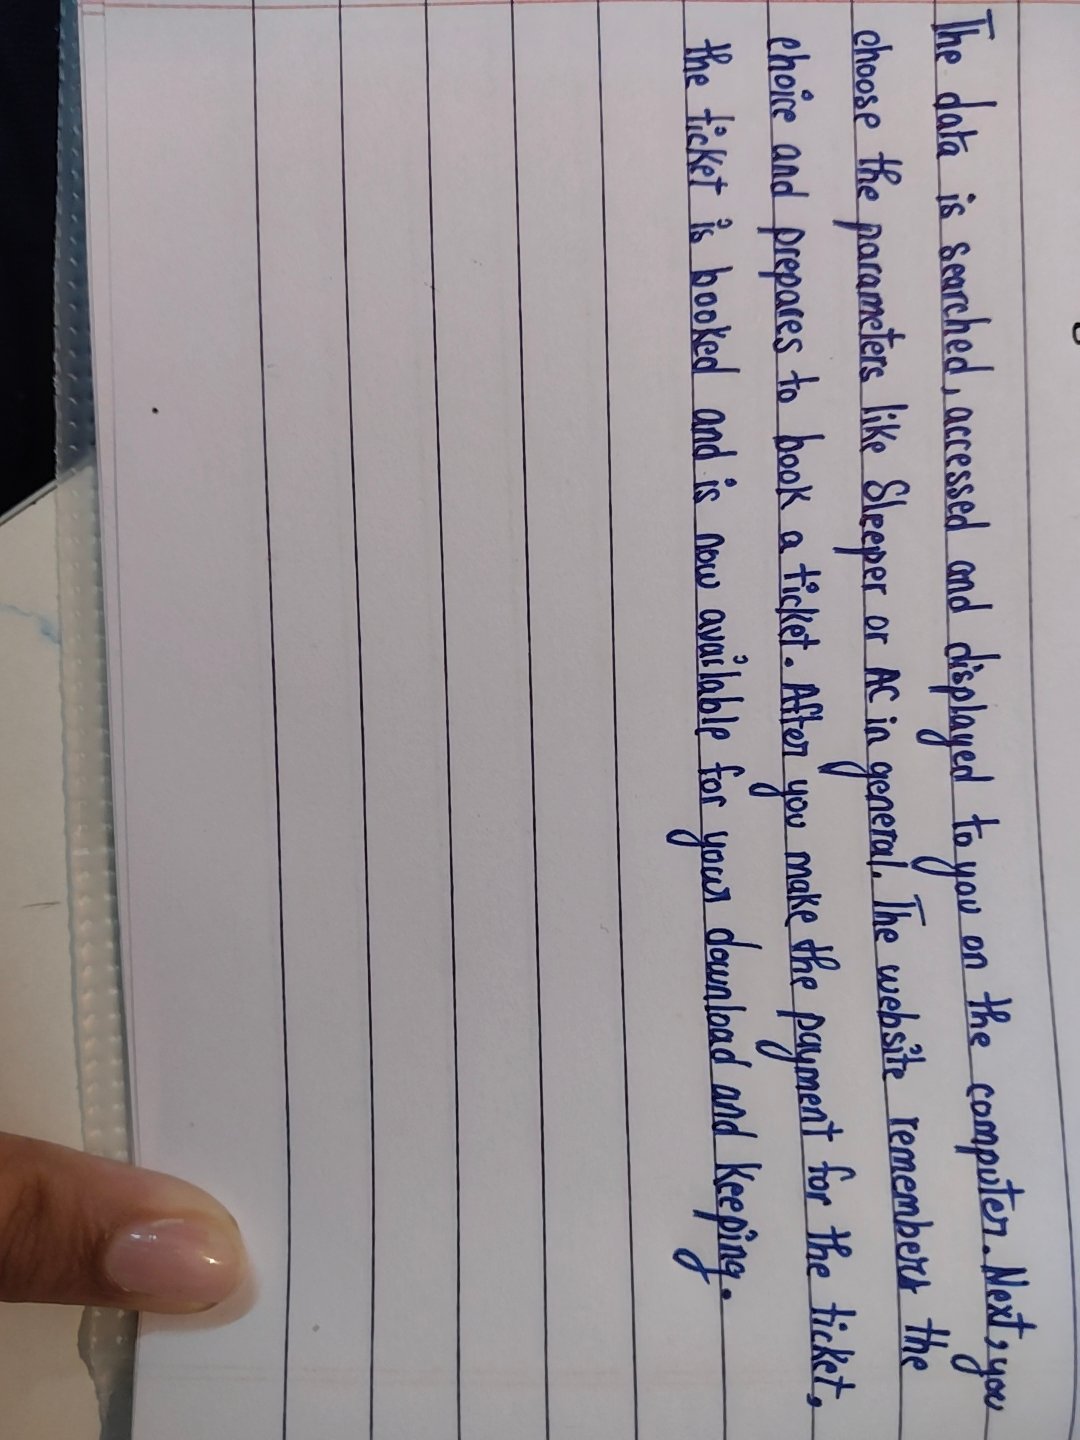 The data is searched, accessed and displayed to you on the computer. Next, you
choose the parameters like Sleeper or AC in general. The website remembers the
choice and prepares to book a ticket. After you make the payment for the ticket,
the ticket is booked and is now available for your download and keeping.